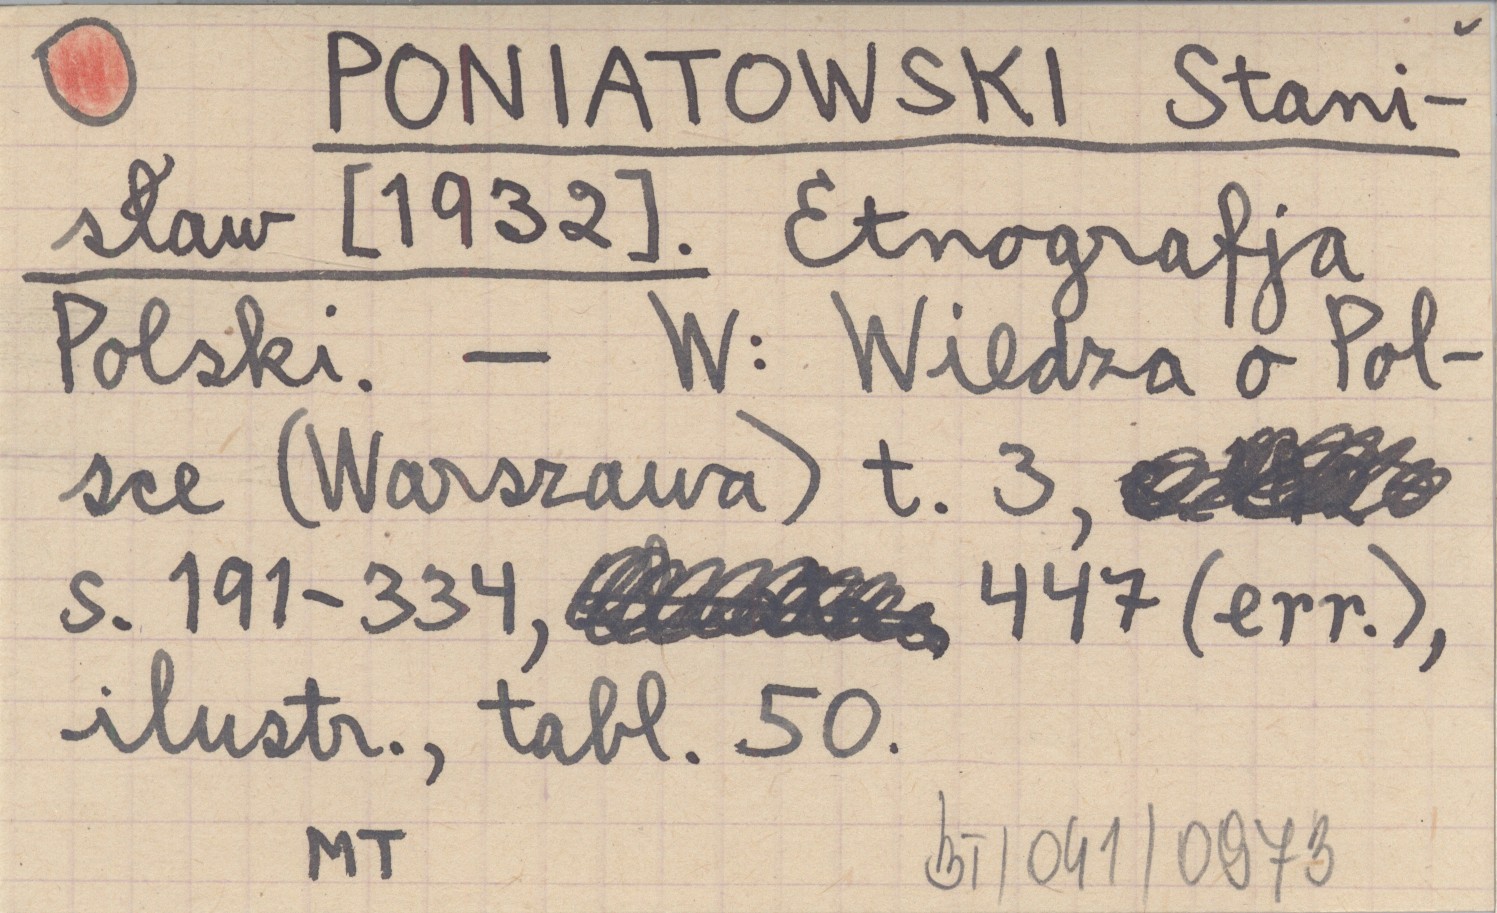 PONIATOWSKI Stani-
sław [1932]. Etnografja
Polski. — W: Wiedza o Pol-
sce (Warszawa) t. 3,
s. 191-334, 447 (err.),
ilustr., tabl. 50.
MT
/041/0973